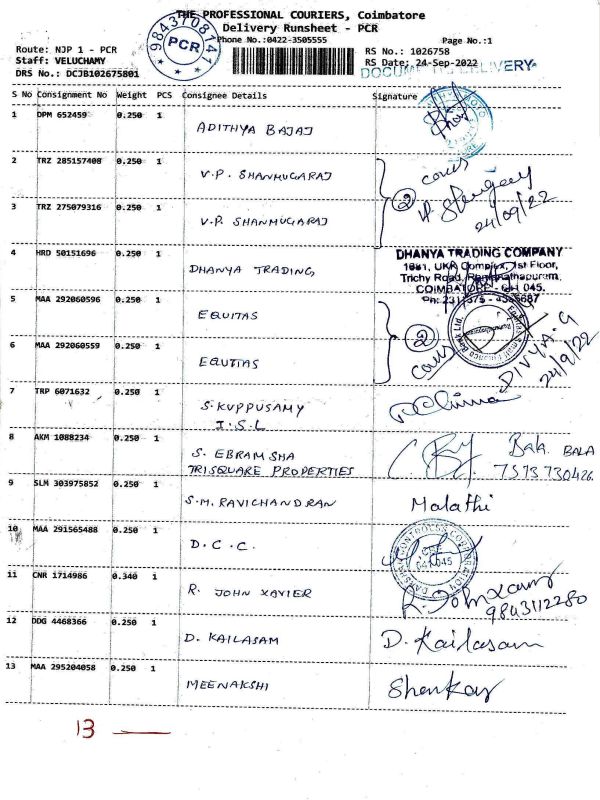 THE PROFESSIONAL COURIERS, Coimbatore
Delivery Runsheet - PCR
Phone No.:0422-3505555
Page No.:1
9843708141
PCR
Route: NJP 1 - PCR
RS No.: 1026758
Staff: VELUCHAMY
RS Date: 24-Sep-2022
DRS No.: DCJB102675801
DELIVERY
S No Consignment No Weight PCS Consignee Details Signature
1 DPM 652459 0.250 1 ADITHYA BAJAJ
2 TRZ 285157408 0.250 1 V.P. SHANMUGARAJ
② cours
3 TRZ 275079316 0.250 1 V.P. SHANMUGARAJ
24/09/22
4 HRD 50151696 0.250 1 DHANYA TRADING
DHANYA TRADING COMPANY
1881, UKR Complex, 1st Floor,
Trichy Road, Ramanathapuram,
COIMBATORE - 641 045.
5 MAA 292060596 0.250 1 EQUITAS
② cours
DIVYA.G
24/9/22
6 MAA 292060559 0.250 1 EQUITAS
7 TRP 6071632 0.250 1 S.KUPPUSAMY
I.S.L
8 AKM 1088234 0.250 1 S. EBRAMSHA
TRISQUARE PROPERTIES
Bala BALA
7373730426
9 SLM 303975852 0.250 1 S.M. RAVICHANDRAN Malathi
10 MAA 291565488 0.250 1 D.C.C.
11 CNR 1714986 0.340 1 R. JOHN XAVIER
R. John Xavier
9843112280
12 DDG 4468366 0.250 1 D. KAILASAM D. Kailasam
13 MAA 295204058 0.250 1 MEENAKSHI Shenkar
13